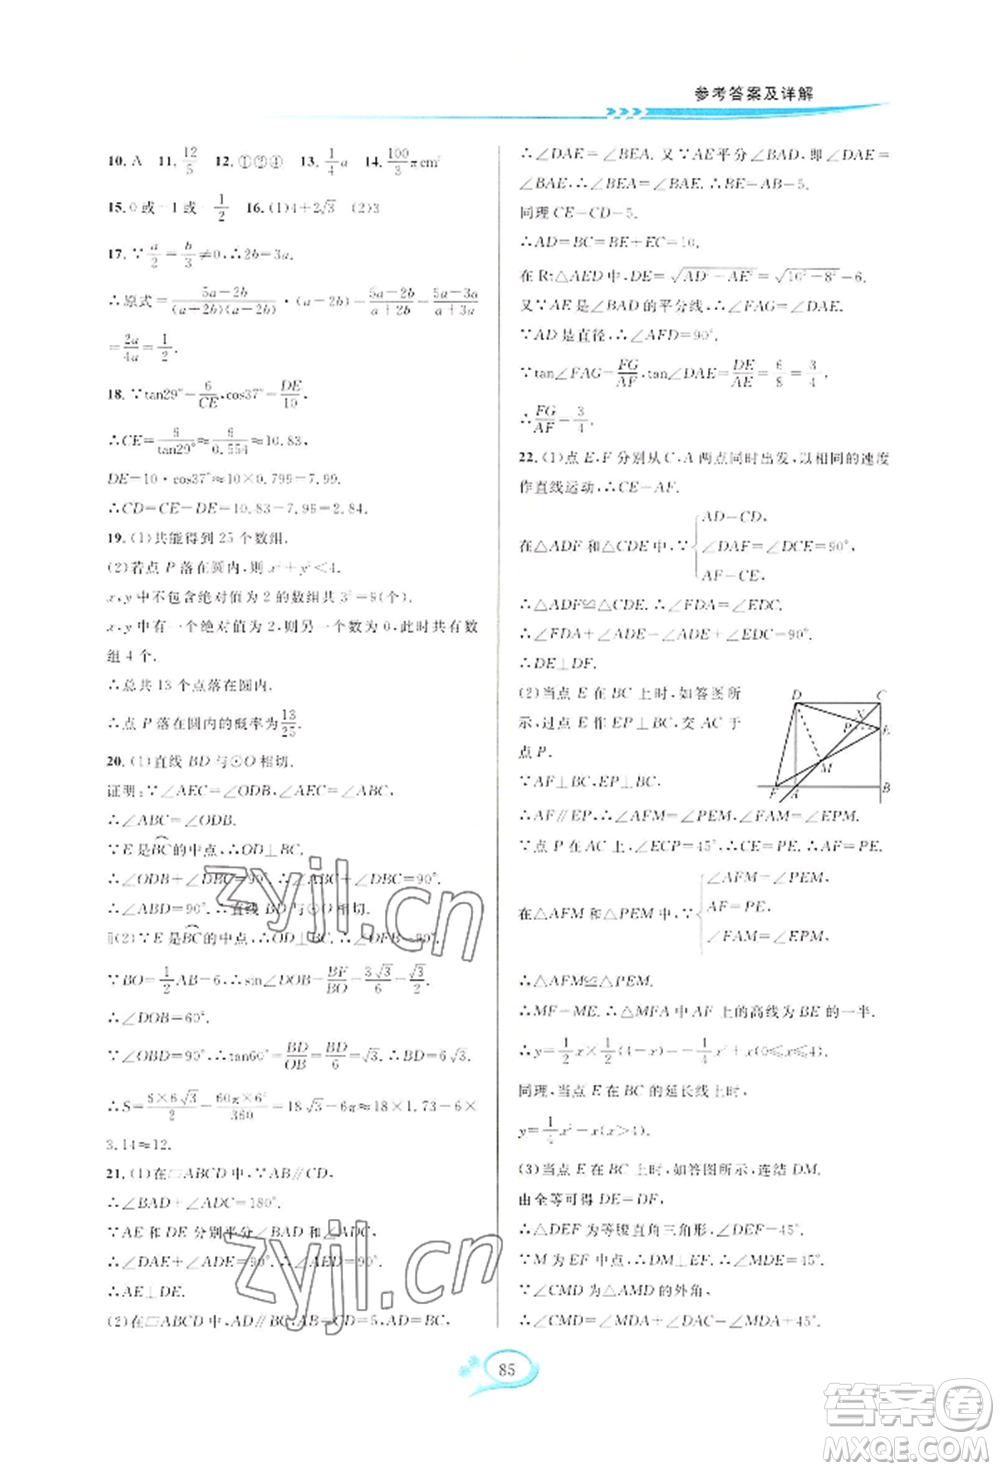 参考答案及详解
10. A 11. 12/5 12. ①②④ 13. 1/4 a 14. 100/3 πcm²
15. 0或-1或-1/2 16. (1)4+2√3 (2)3
17. ∵a/2=b/3≠0,∴2b=3a.
∴原式=(5a-2b)/((a+2b)(a-2b))·(a-2b)=(5a-2b)/(a+2b)=(5a-3a)/(a+3a)
=2a/4a=1/2.
18. ∵tan29°=6/CE,cos37°=DE/10,
∴CE=6/tan29°≈6/0.554≈10.83,
DE=10·cos37°≈10×0.799=7.99.
∴CD=CE-DE=10.83-7.99=2.84.
19. (1)共能得到25个数组.
(2)若点P落在圆内,则x²+y²<4.
x,y中不包含绝对值为2的数组共3²=9(个).
x,y中有一个绝对值为2,则另一个数为0,此时共有数
组4个.
∴总共13个点落在圆内.
∴点P落在圆内的概率为13/25.
20. (1)直线BD与⊙O相切.
证明:∵∠AEC=∠ODB,∠AEC=∠ABC,
∴∠ABC=∠ODB.
∵E是BC的中点,∴OD⊥BC.
∴∠ODB+∠DBC=90°.
∴∠ABD=90°.∴直线BD与⊙O相切.
(2)∵E是BC的中点,∴OD⊥BC.∴∠OFB=90°.
∵BO=1/2AB=6,∴sin∠DOB=BF/BO=3√3/6=√3/2.
∴∠DOB=60°.
∵∠OBD=90°,∴tan60°=BD/OB=√3.∴BD=6√3.
∴S=6×6√3/2-60π×6²/360=18√3-6π≈18×1.73-6×
3.14≈12.
21. (1)在□ABCD中,∵AB∥CD,
∴∠BAD+∠ADC=180°.
∵AE和DE分别平分∠BAD和∠ADC,
∴∠DAE+∠ADE=90°.∴∠AED=90°.
∴AE⊥DE.
(2)在□ABCD中,AD∥BC,AB=CD=5,AD=BC,
∴∠DAE=∠BEA.又∵AE平分∠BAD,即∠DAE=
∠BAE,∴∠BEA=∠BAE.∴BE=AB=5.
同理CE=CD=5.
∴AD=BC=BE+EC=10.
在Rt△AED中,DE=√(AD²-AE²)=√(10²-8²)=6.
又∵AE是∠BAD的平分线,∴∠FAG=∠DAE.
∵AD是直径,∴∠AFD=90°.
∵tan∠FAG=FG/AF,tan∠DAE=DE/AE=6/8=3/4,
∴FG/AF=3/4.
22. (1)点E、F分别从C、A两点同时出发,以相同的速度
作直线运动,∴CE=AF.
AD=CD,
在△ADF和△CDE中,∵ ∠DAF=∠DCE=90°,
AF=CE,
∴△ADF≌△CDE.∴∠FDA=∠EDC.
∴∠FDA+∠ADE=∠ADE+∠EDC=90°.
∴DE⊥DF.
(2)当点E在BC上时,如答图所
示,过点E作EP⊥BC,交AC于
点P.
D C P E M F A B
∵AF⊥BC,EP⊥BC,
∴AF∥EP.∴∠AFM=∠PEM,∠FAM=∠EPM.
∵点P在AC上,∠ECP=45°,∴CE=PE.∴AF=PE.
∠AFM=∠PEM,
在△AFM和△PEM中,∵ AF=PE,
∠FAM=∠EPM,
∴△AFM≌△PEM.
∴MF=ME.∴△MAF中AF上的高线为BE的一半.
∴y=1/2x×1/2(4-x)=-1/4x²+x(0≤x≤4).
同理,当点E在BC的延长线上时,
y=1/4x²-x(x>4).
(3)当点E在BC上时,如答图所示,连结DM.
由全等可得DE=DF,
∴△DEF为等腰直角三角形,∠DEF=45°.
∵M为EF中点,∴DM⊥EF.∴∠MDE=45°.
∵∠CMD=∠CMD为△AMD的外角,
∴∠CMD=∠CAD+∠ADM=45°+∠ADM.
85
zyjl.cn
zyjl.cn
答案圈
MXQE.COM